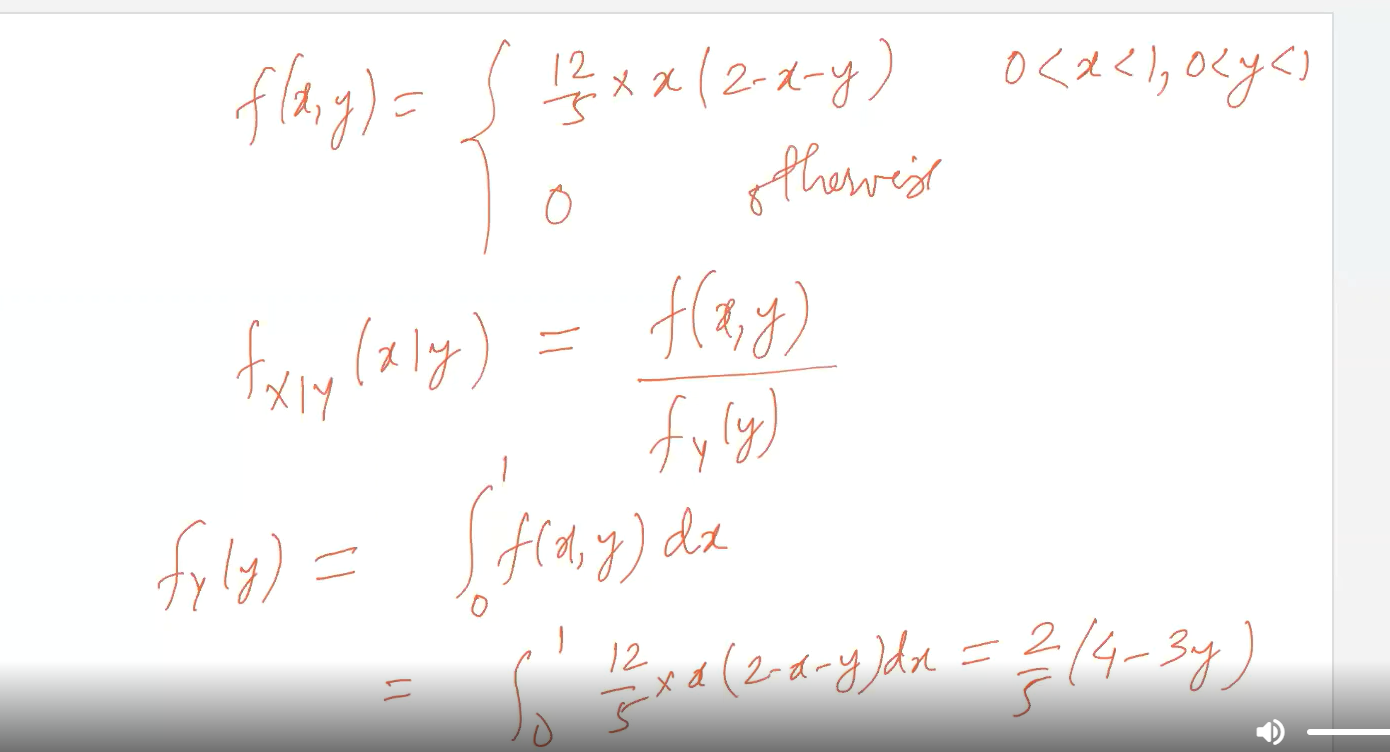 f(x,y) = { 12/5 × x (2-x-y) 0<x<1, 0<y<1
0 otherwise
f_{X|Y} (x|y) = f(x,y) / f_Y(y)
f_Y(y) = ∫_0^1 f(x,y) dx
= ∫_0^1 12/5 × x (2-x-y)dx = 2/5 (4-3y)